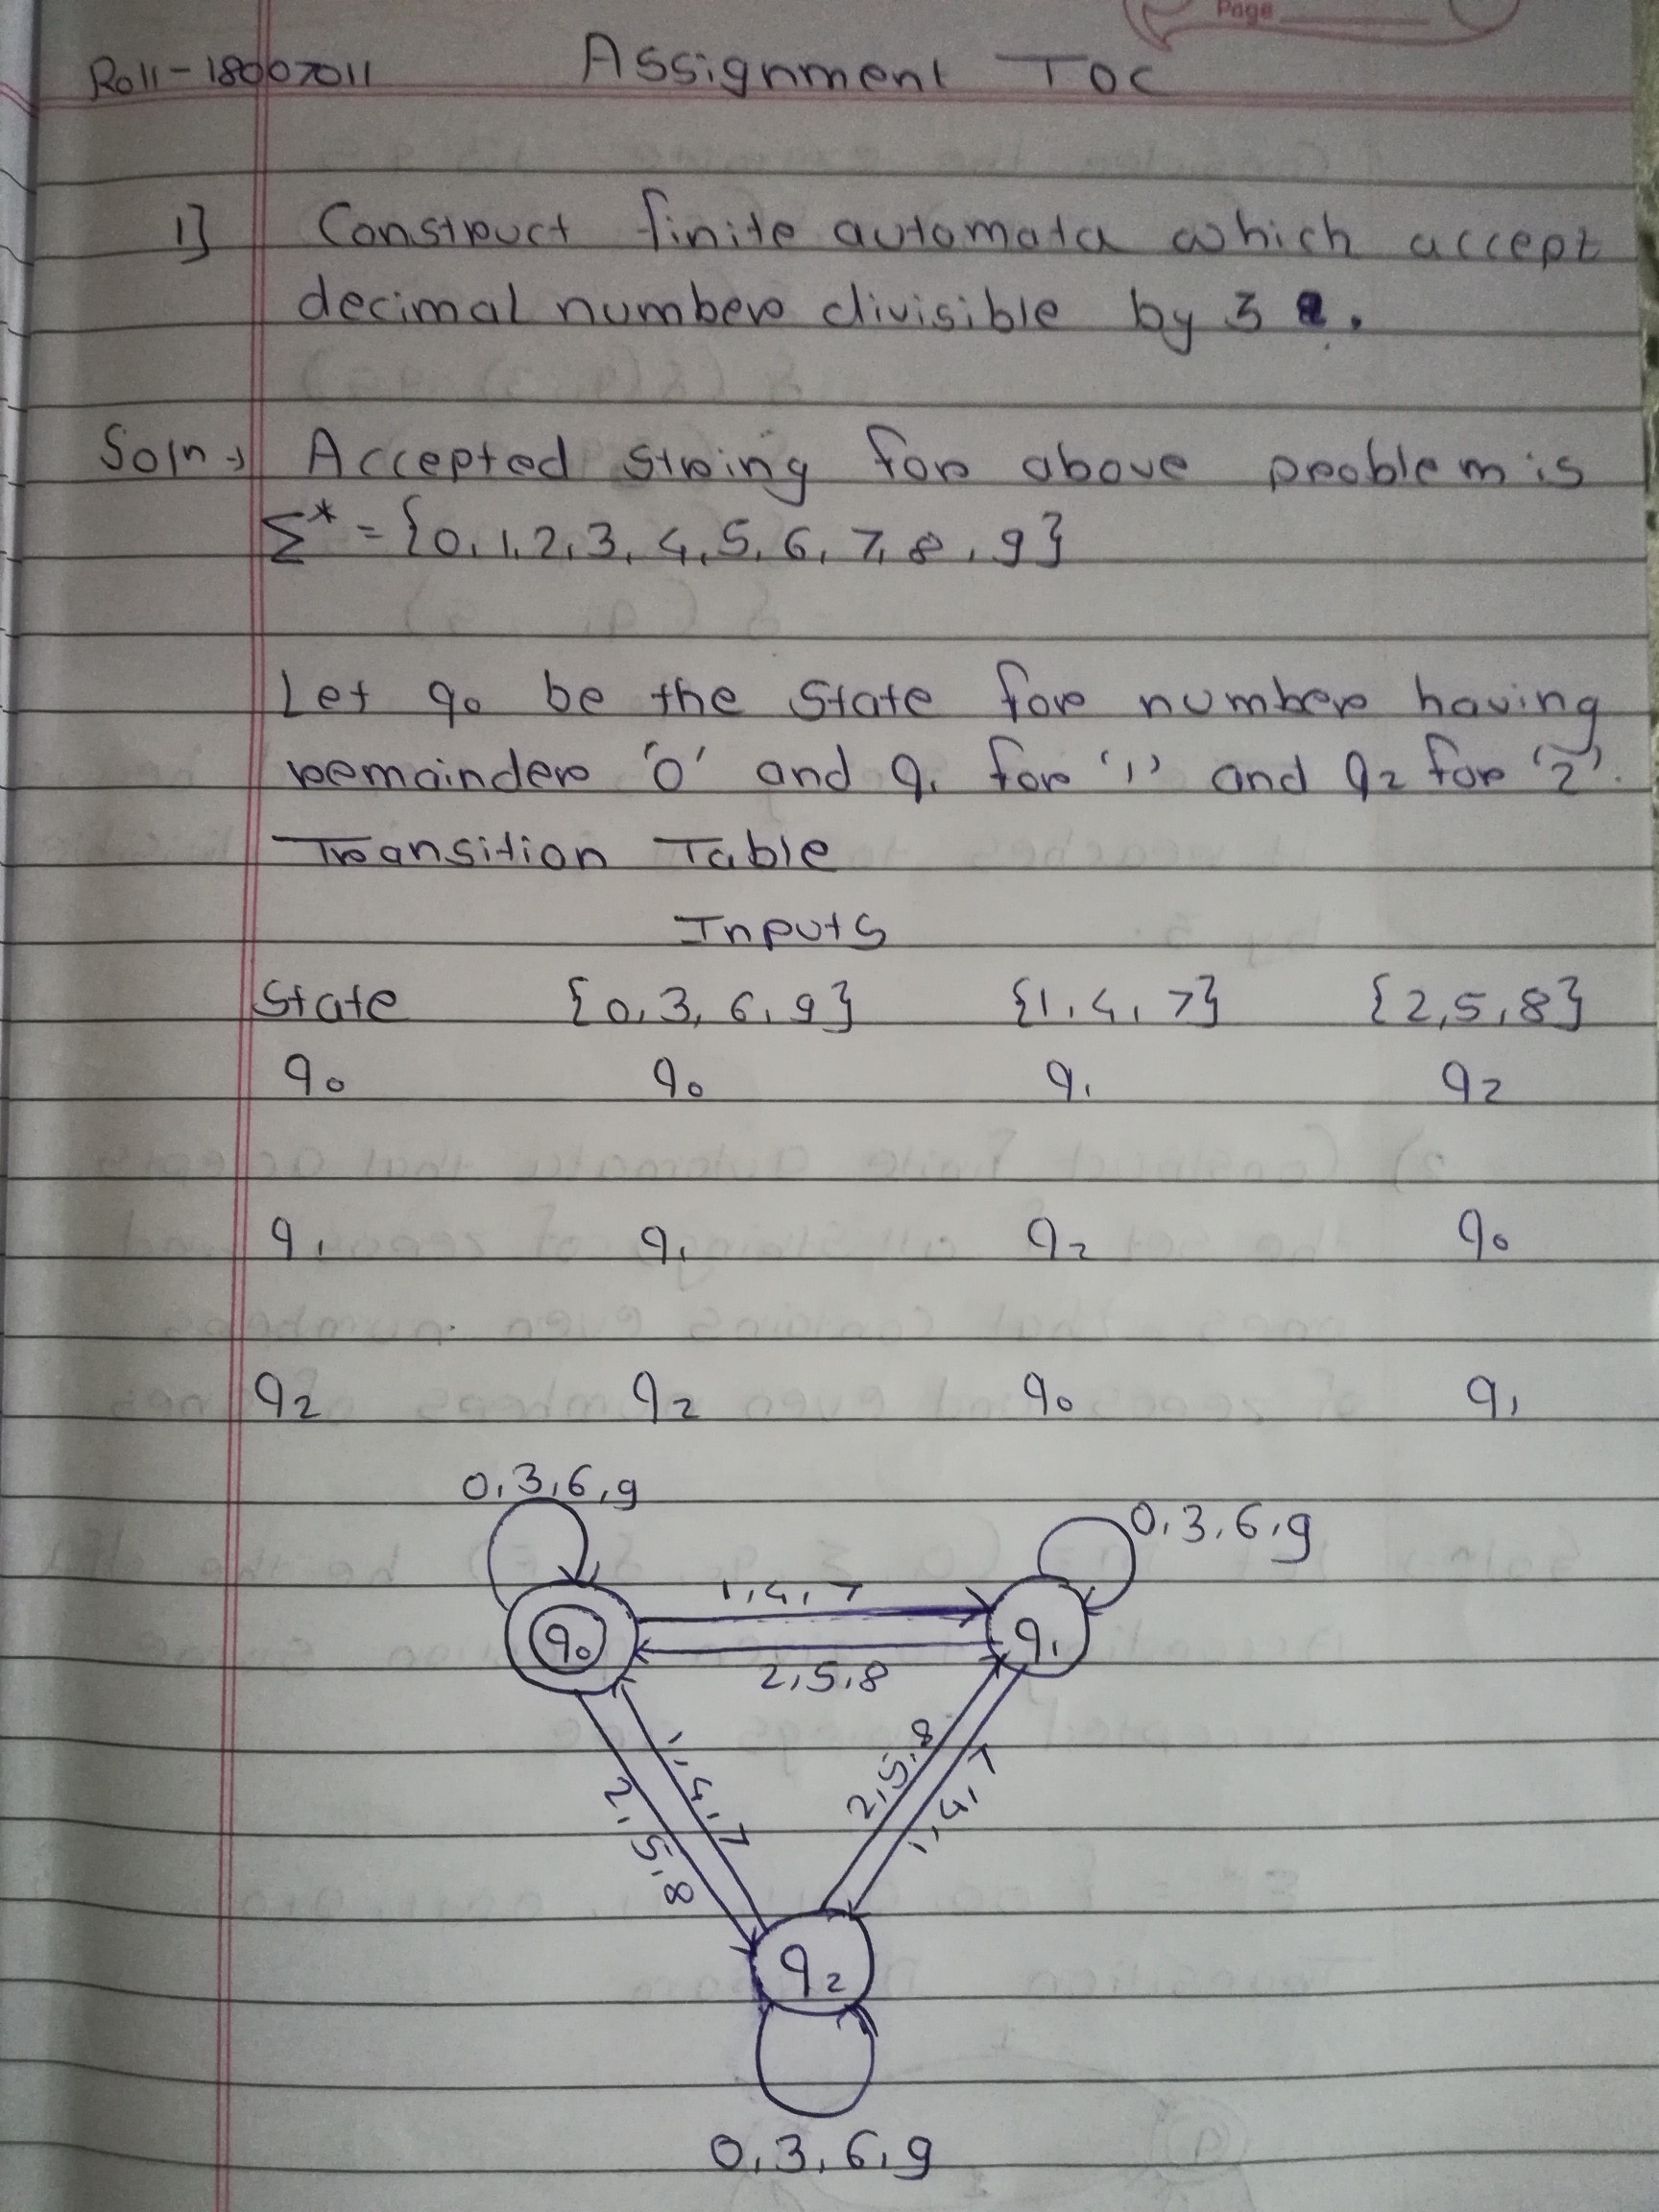 Page
Roll-18007011 Assignment TOC
1] Construct finite automata which accept
decimal number divisible by 3 .
Soln→ Accepted string for above problem is
Σ* = {0, 1, 2, 3, 4, 5, 6, 7, 8, 9}
Let q₀ be the state for number having
remainder '0' and q₁ for '1' and q₂ for '2'.
Transition Table
Inputs
State {0, 3, 6, 9} {1, 4, 7} {2, 5, 8}
q₀ q₀ q₁ q₂
q₁ q₁ q₂ q₀
q₂ q₂ q₀ q₁
0, 3, 6, 9
0, 3, 6, 9
1, 4, 7
q₀
q₁
2, 5, 8
1, 4, 7
2, 5, 8
2, 5, 8
1, 4, 7
q₂
0, 3, 6, 9